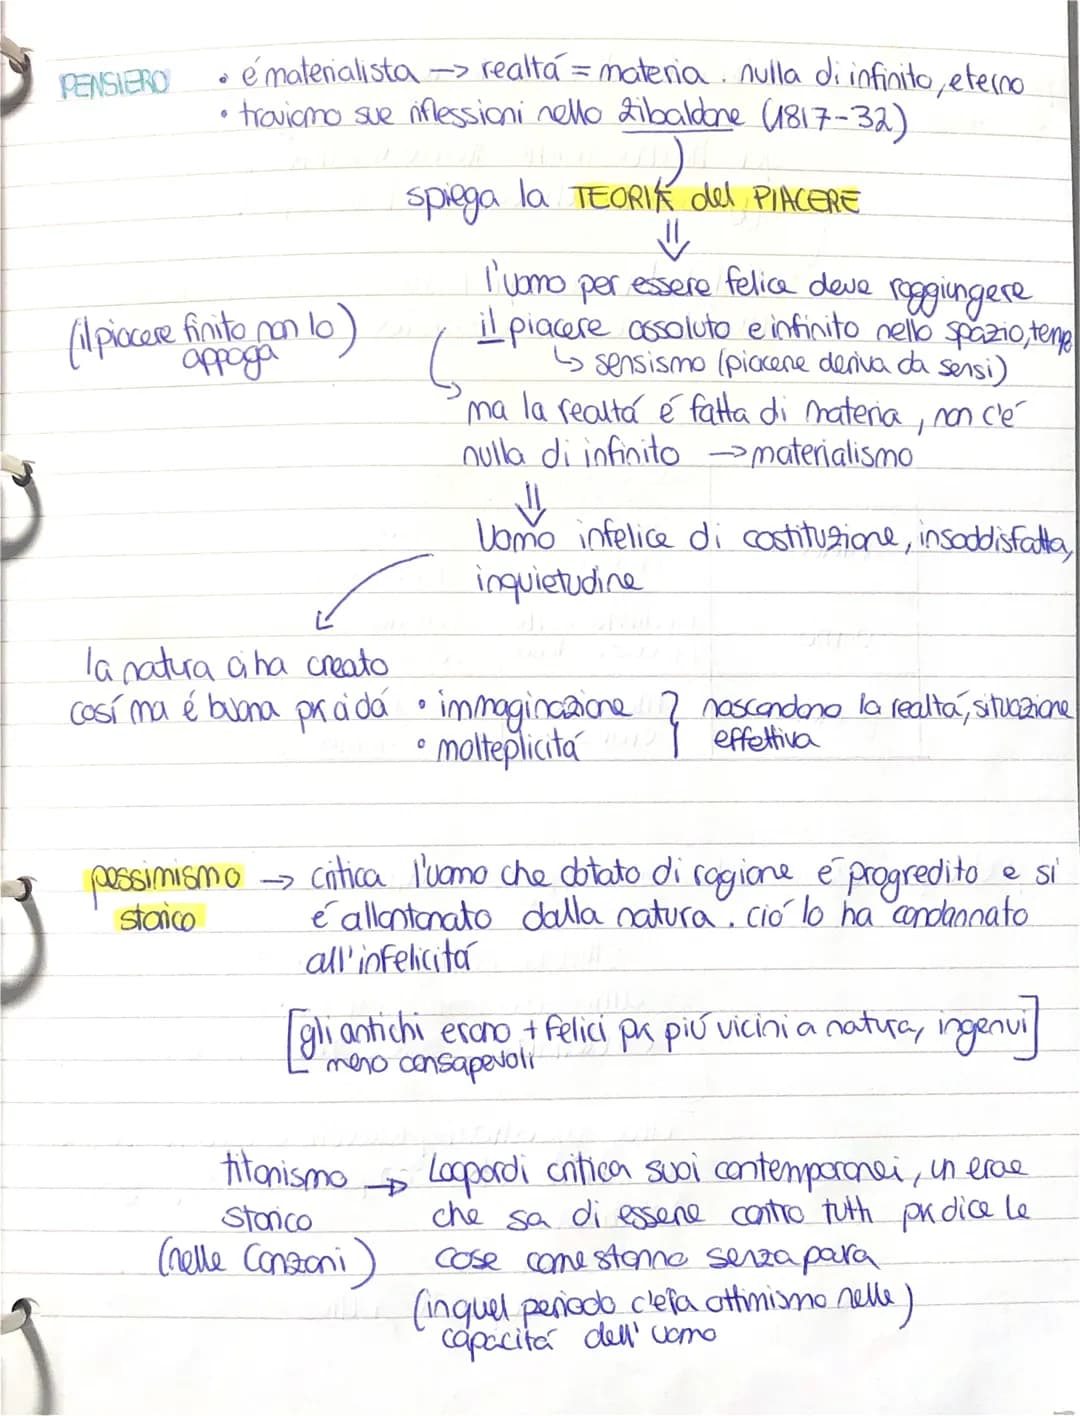 PENSIERO • é materialista -> realtá = materia . nulla di infinito, eterno
• troviamo sue riflessioni nello Zibaldone (1817-32)
spiega la TEORIA del PIACERE
l'uomo per essere felice deve raggiungere
(il piacere finito non lo appaga)
il piacere assoluto e infinito nello spazio, tempo
↳ sensismo (piacere deriva da sensi)
ma la realtá é fatta di materia, non c'é
nulla di infinito -> materialismo
⇓
Uomo infelice di costituzione, insoddisfatta,
inquietudine
la natura ci ha creato
cosí ma é buona pk ci dá • immaginazione } nascondono la realtá, situazione
• molteplicitá effettiva
pessimismo -> critica l'uomo che dotato di ragione é progredito e si
storico é allontanato dalla natura. ció lo ha condannato
all'infelicitá
[gli antichi erano + felici pk piú vicini a natura, ingenui]
meno consapevoli
titanismo -> Leopardi critica suoi contemporanei, un eroe
storico che sa di essere contro tutti pk dice le
(nelle Canzoni) cose come stanno senza paura
(in quel periodo c'era ottimismo nelle)
capacitá dell'uomo